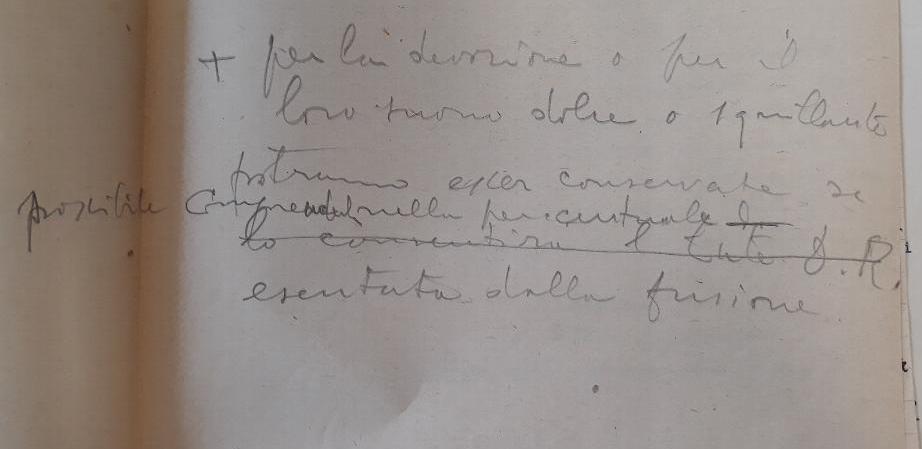 + per la devozione o per il
loro suono dolce o squillante
potranno esser conservate se
possibile comprendendole nella percentuale
lo consentirà l'Ente O.R.
esentata dalla fusione.